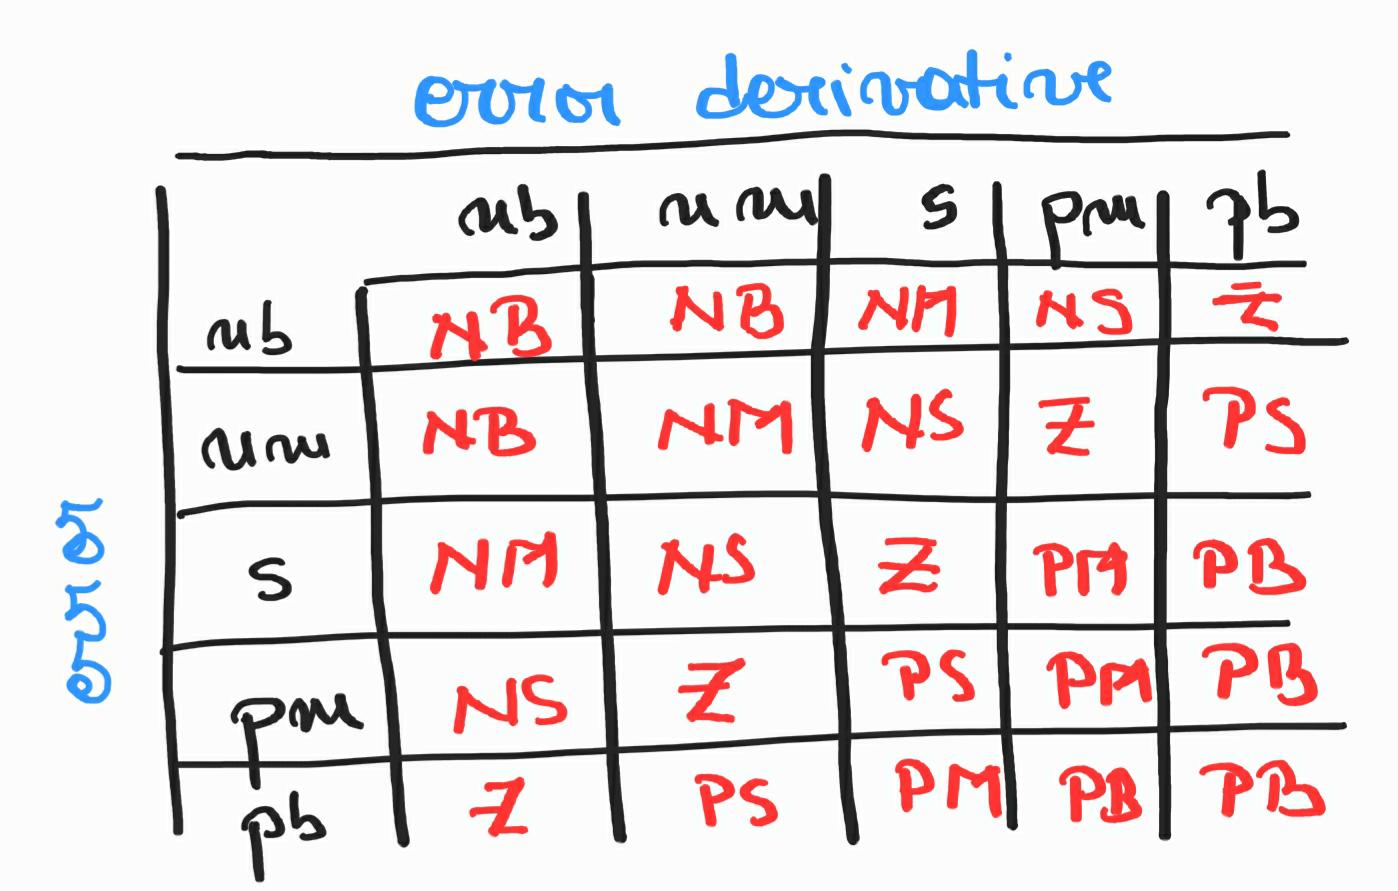 error derivative
nb nm s pm pb
nb NB NB NM NS Z
nm NB NM NS Z PS
s NM NS Z PM PB
pm NS Z PS PM PB
pb Z PS PM PB PB
error